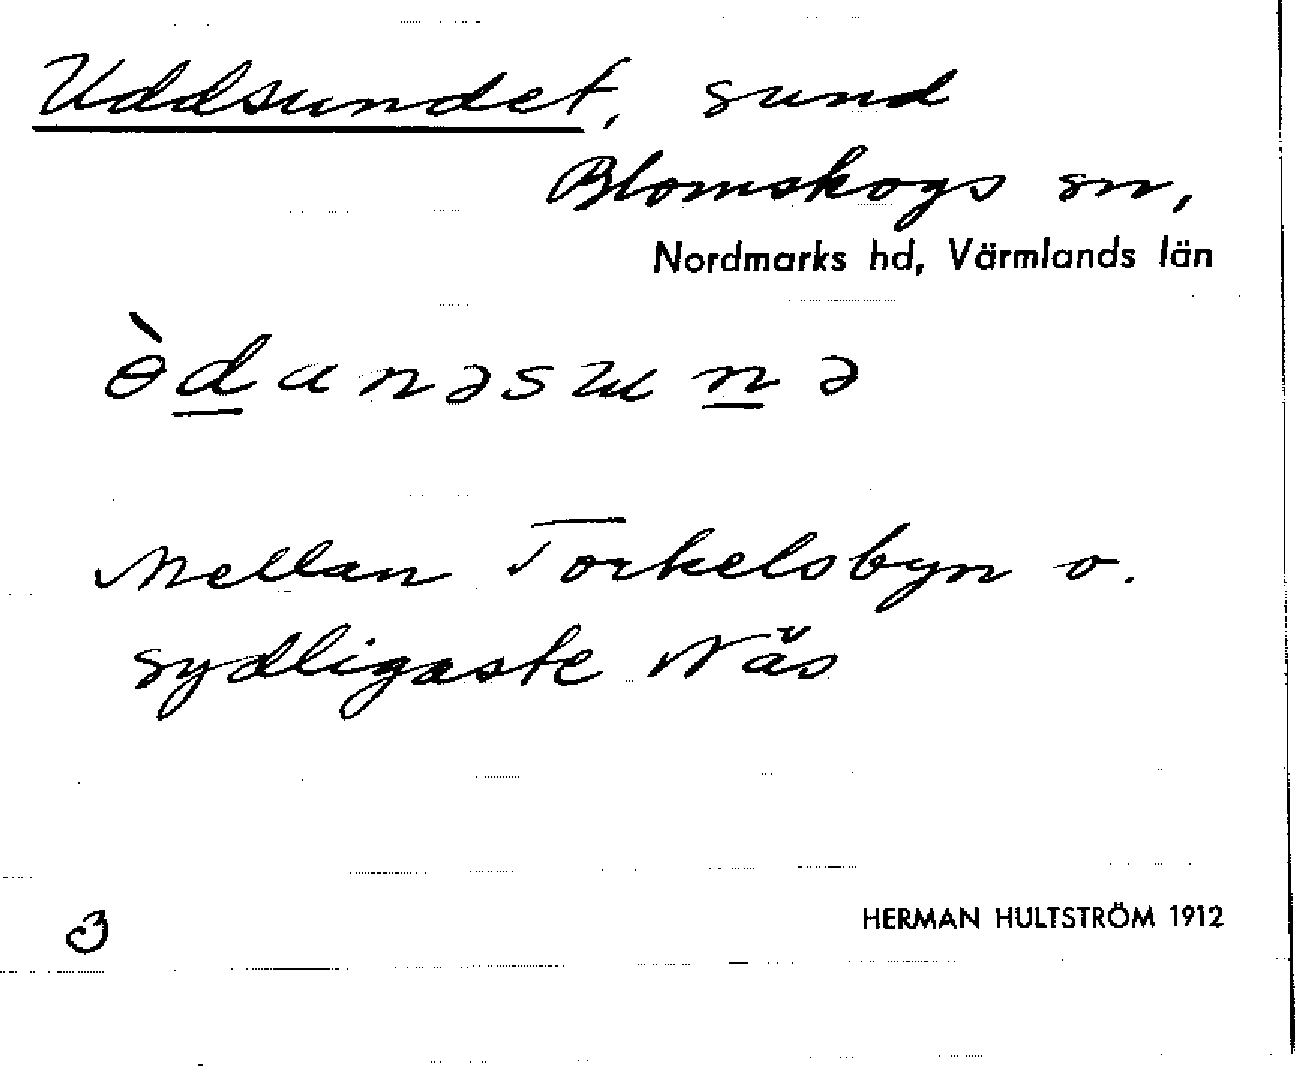 Uddsundet, sund
Blomskogs sn,
Nordmarks hd, Värmlands län
ɵ̀d̲anəsɯn̲ə
Mellan Torkelsbyn o.
sydligaste Näs
3
HERMAN HULTSTRÖM 1912